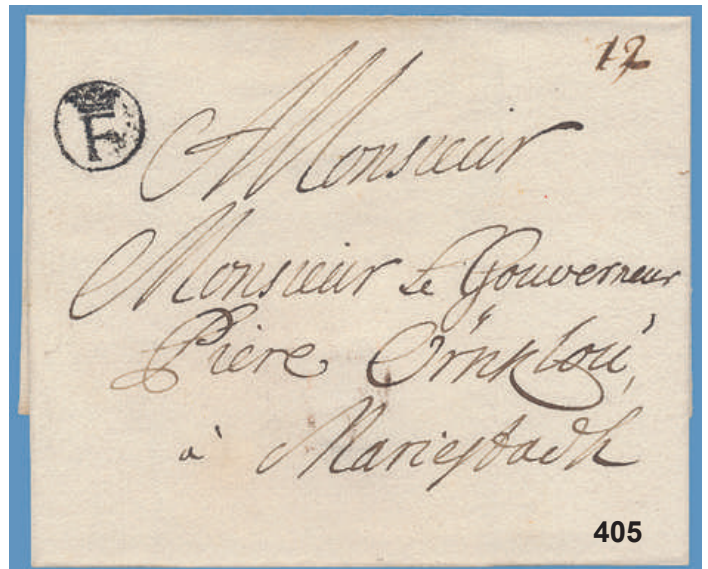 12
F
Monsieur
Monsieur Le Gouverneur
Piere Örnklou,
à Mariestadh
405